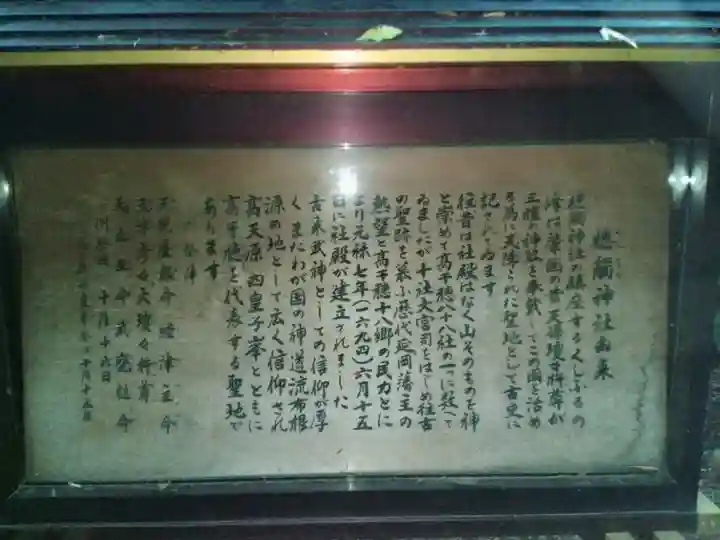 槵觸神社由来
槵觸神社の鎮座するくしふるの
峰は肇国の昔天孫瓊々杵尊が
三種の神器を奉戴してこの国を治め
る為に天降られた聖地として古史に
記されてゐます
往昔は社殿はなく山そのものを神
と崇めて高千穂八十八社の一つに数へて
ゐましたが十社大宮司をはじめ往古
の聖跡を慕ふ歴代延岡藩主の
熱望と高千穂十八郷の民力とに
より元禄七年(一六九四)六月十五
日に社殿が建立されました
古来武神としての信仰が厚
くまたわが国の神道流布根
源の地として広く信仰され
高天原 四皇子峯とともに
高千穂を代表する聖地で
あります
祭神
天児屋根命 経津主命
天津々々天瓊々杵尊
天太玉命 武甕槌命
例祭 十月十六日
十月十五日